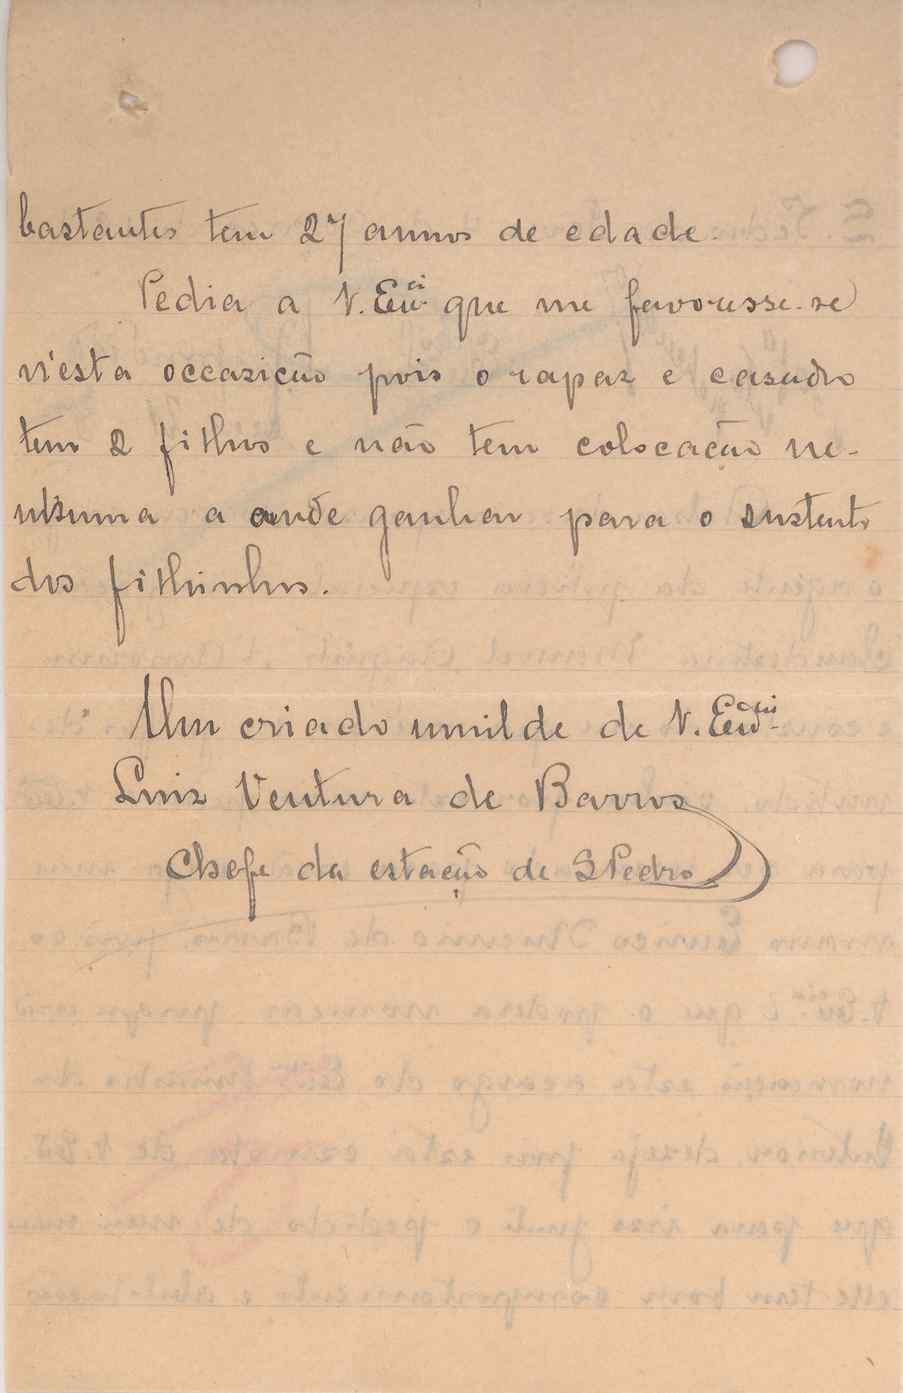 bastantes tem 27 annos de edade.
Pedia a V. Excia que me favoresse-se
n'esta occazição pois o rapaz e casado
tem 2 filhos e não tem colocação ne-
nhuma a onde ganhar para o sustento
dos filhinhos.
Um criado umilde de V. Excia
Luiz Ventura de Barros
Chefe da estação de S. Pedro